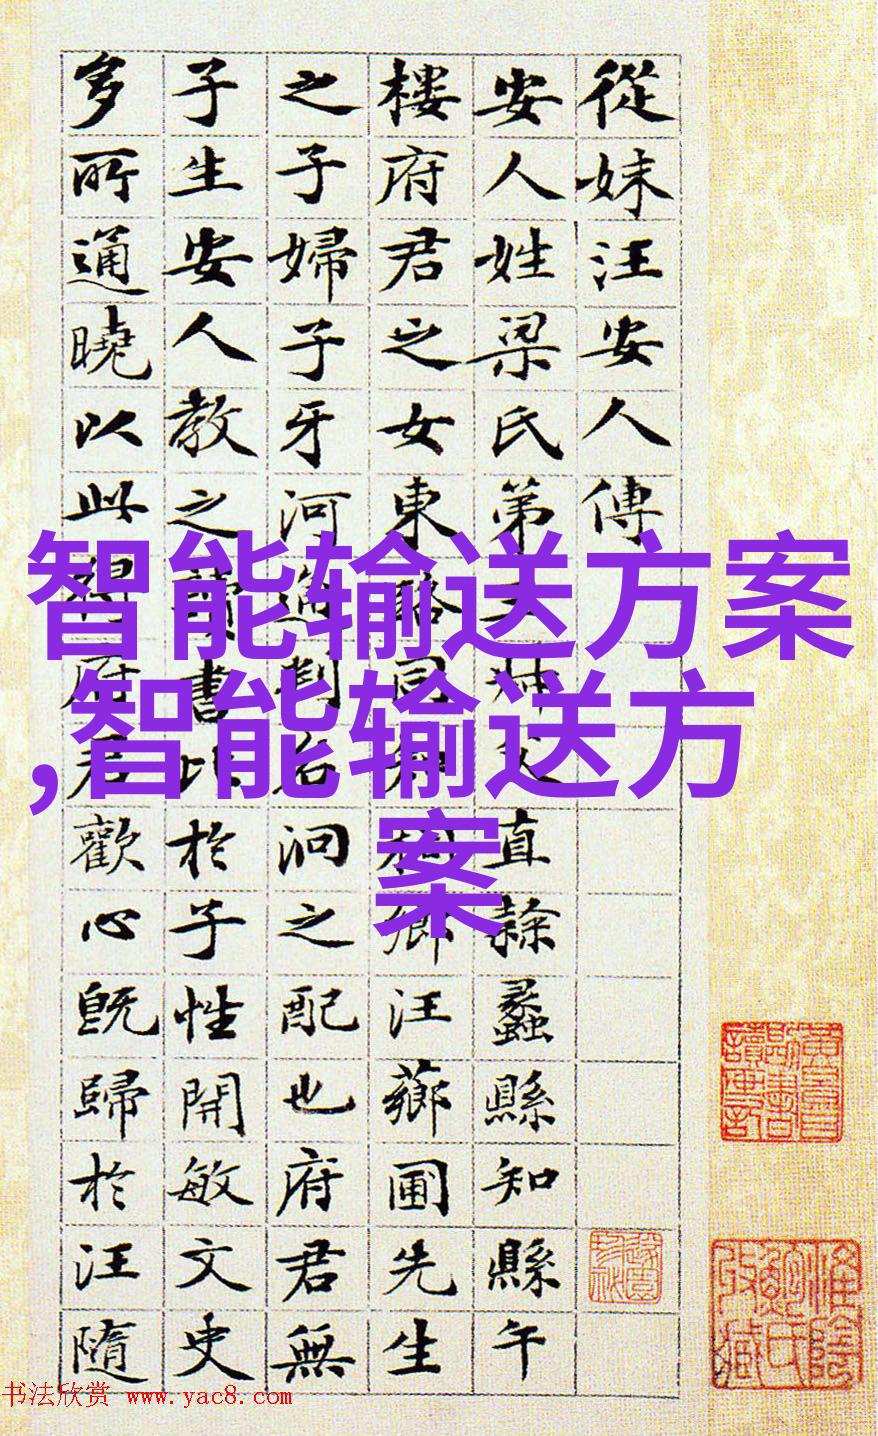 從妹汪安人傳
安人姓梁氏第直隸蠡縣知縣午
樓府君之女東路同知桐鄉汪薌圃先生
之子婦子牙河通判名泂之配也府君無
子生安人教之讀書比於子性開敏文史
多所通曉以此得府君歡心旣歸於汪隨
智能输送方案
,智能输送方
案
书法欣赏 www.yac8.com